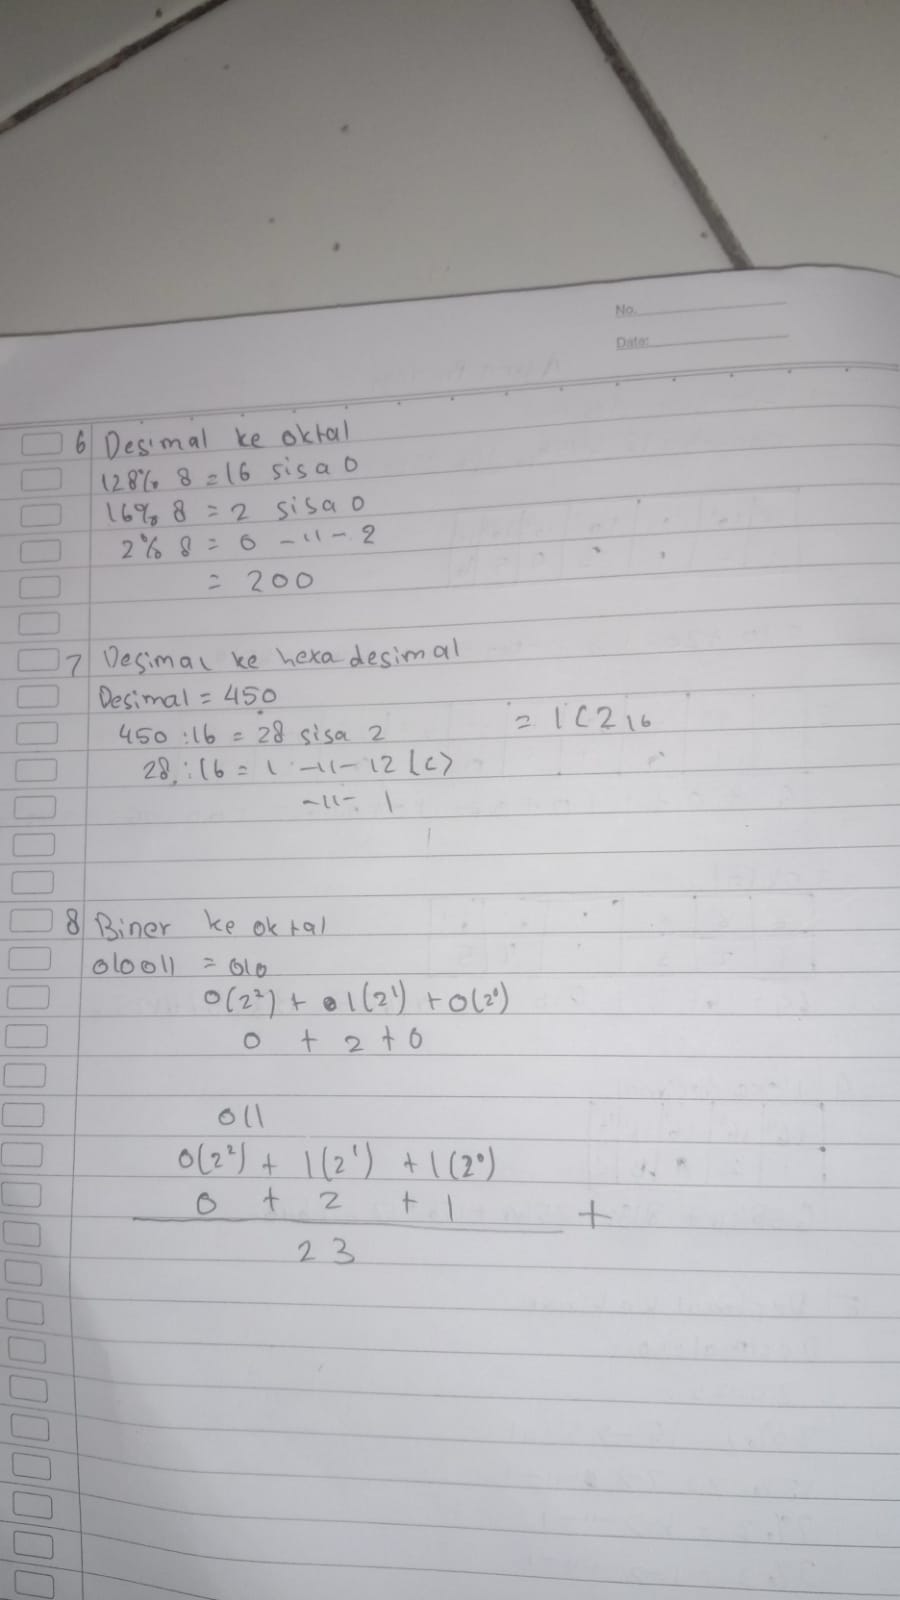 No.
Date:
6 Desimal ke oktal
128% 8 = 16 sisa 0
16% 8 = 2 sisa 0
2% 8 = 0 -11- 2
= 200
7 Desimal ke hexa desimal
Desimal = 450
450 : 16 = 28 sisa 2 = 1C2 16
28 : 16 = 1 -11- 12 (C)
-11- 1
8 Biner ke oktal
010011 = 010
0(2²) + 1(2¹) + 0(2⁰)
0 + 2 + 0
011
0(2²) + 1(2¹) + 1(2⁰)
0 + 2 + 1 +
23